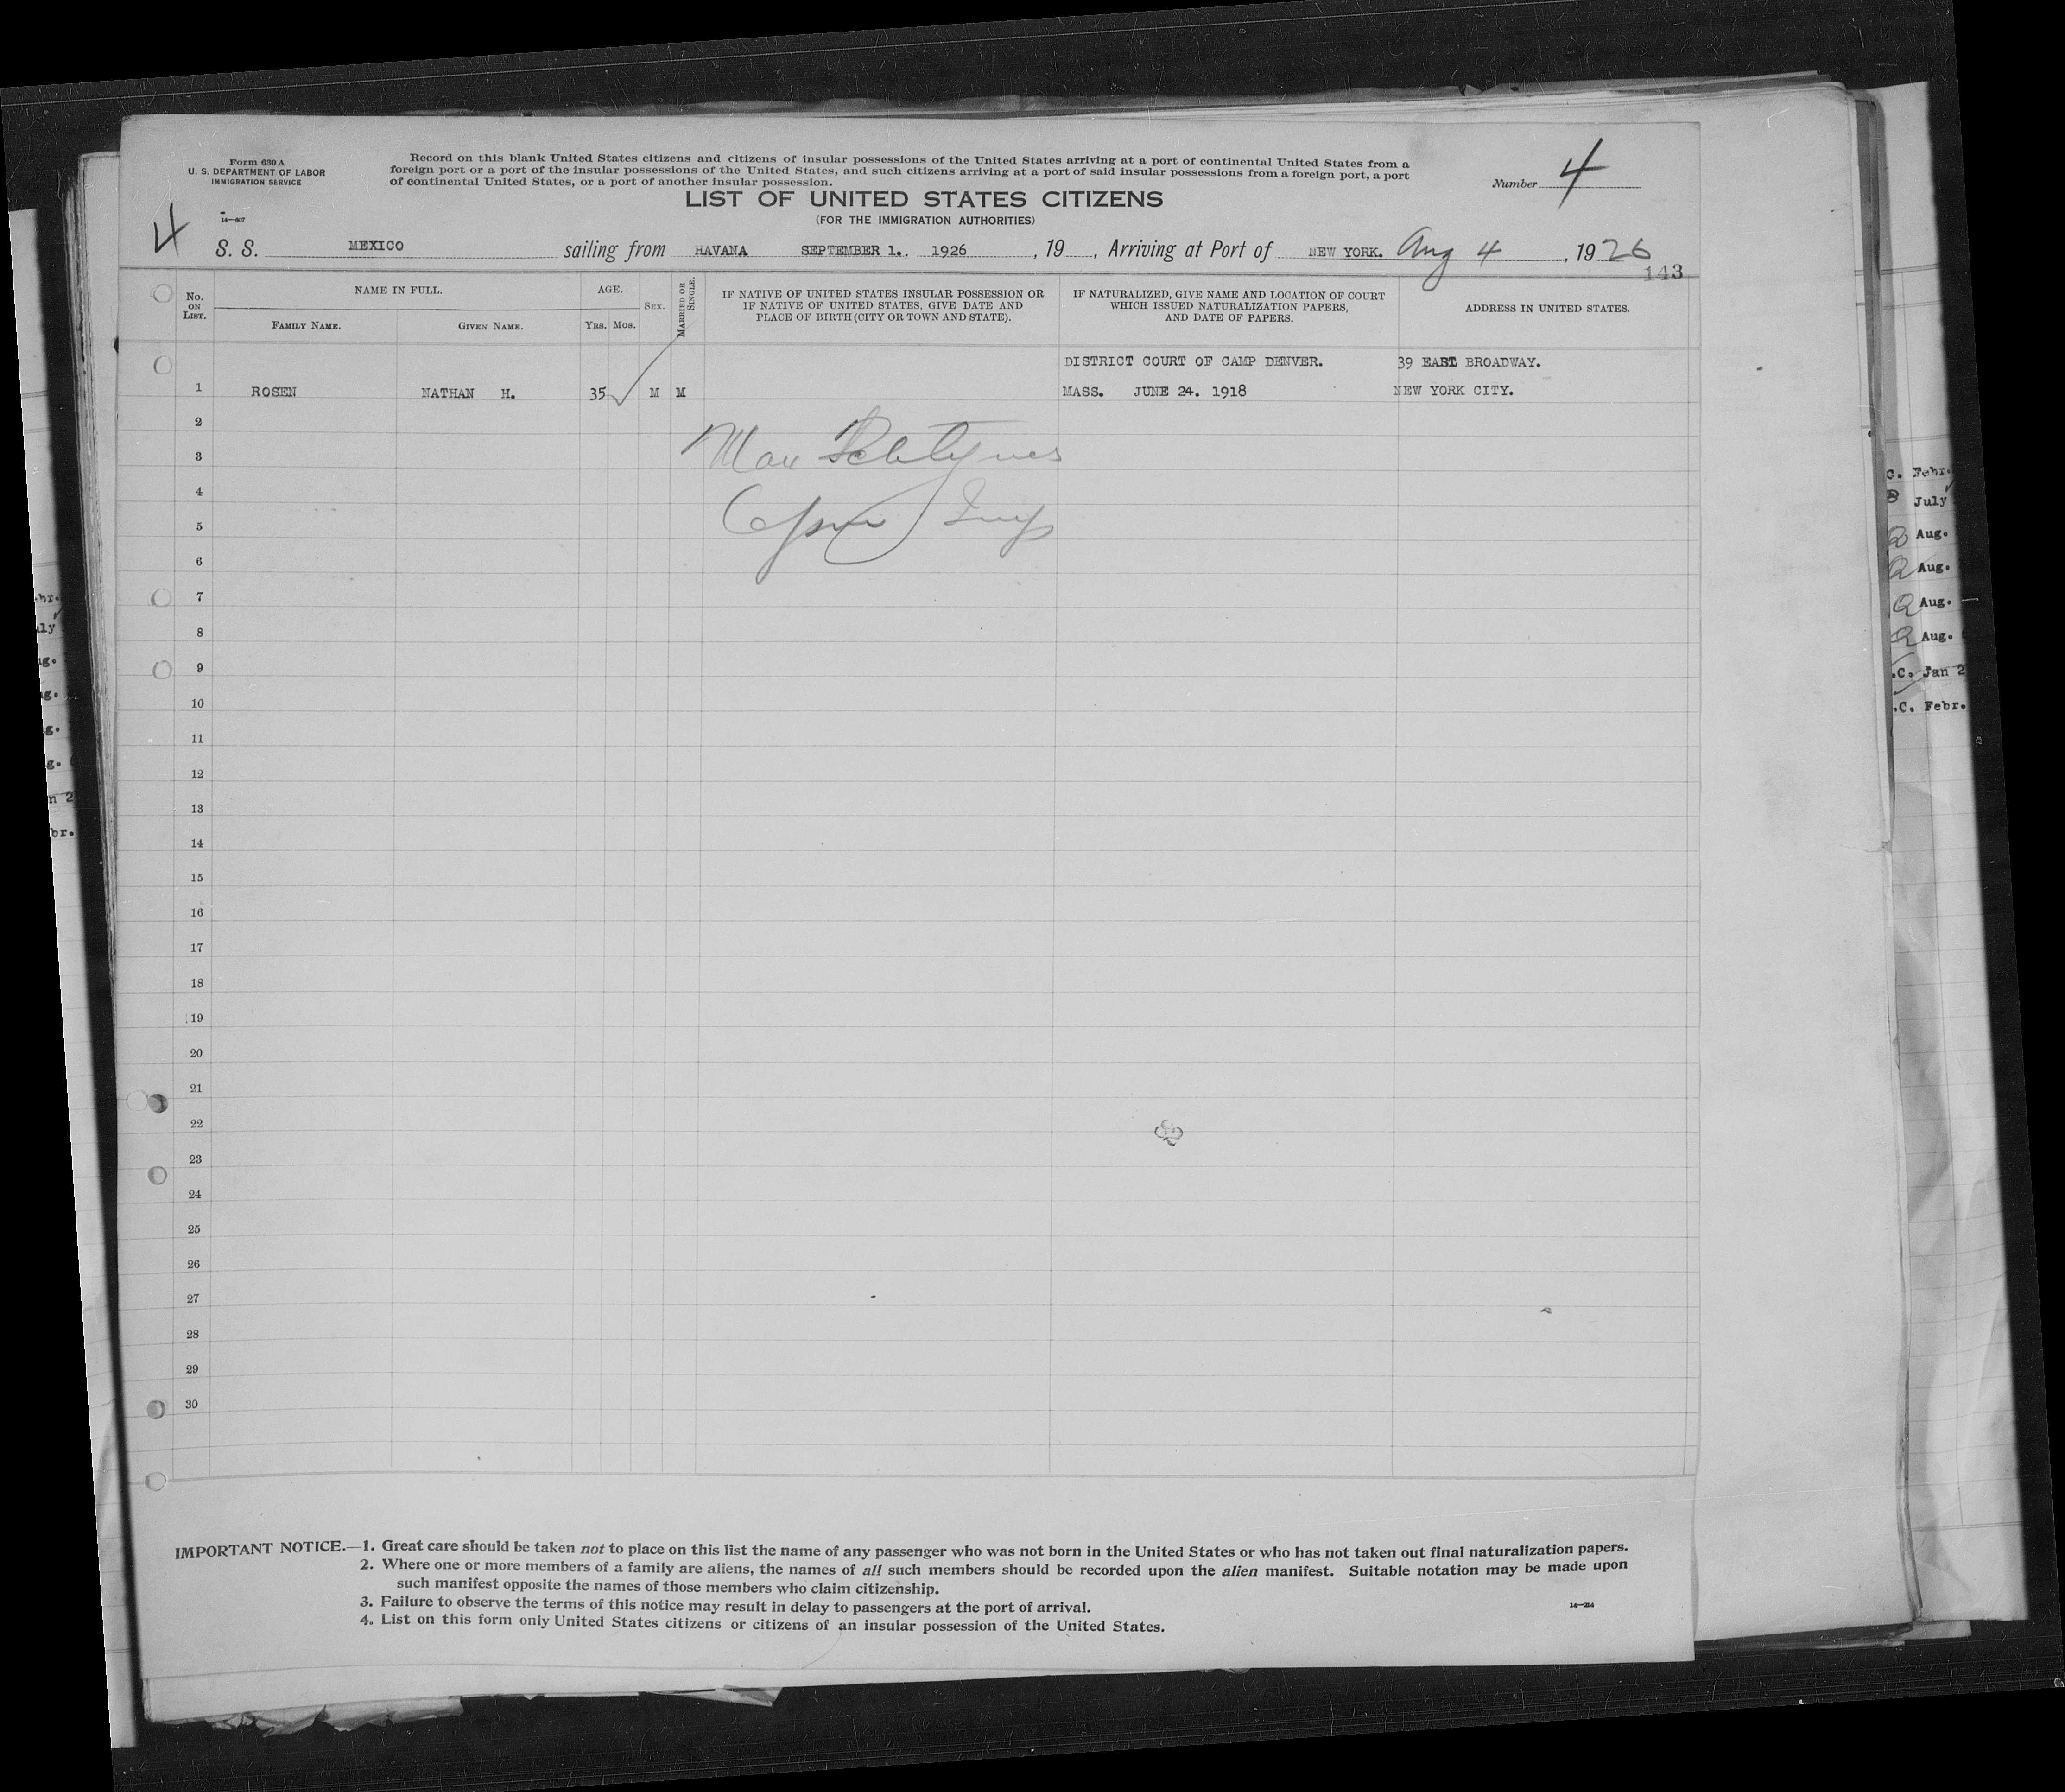 Form 630 A
U. S. DEPARTMENT OF LABOR
IMMIGRATION SERVICE
14—607
Record on this blank United States citizens and citizens of insular possessions of the United States arriving at a port of continental United States from a
foreign port or a port of the insular possessions of the United States, and such citizens arriving at a port of said insular possessions from a foreign port, a port
of continental United States, or a port of another insular possession.
Number 4
LIST OF UNITED STATES CITIZENS
(FOR THE IMMIGRATION AUTHORITIES)
4
S. S. MEXICO sailing from HAVANA SEPTEMBER 1. 1926, 19, Arriving at Port of NEW YORK. Aug 4, 1926
143
No. ON LIST.
NAME IN FULL.
FAMILY NAME.
GIVEN NAME.
AGE.
YRS. MOS.
SEX.
MARRIED OR SINGLE.
IF NATIVE OF UNITED STATES INSULAR POSSESSION OR
IF NATIVE OF UNITED STATES, GIVE DATE AND
PLACE OF BIRTH (CITY OR TOWN AND STATE).
IF NATURALIZED, GIVE NAME AND LOCATION OF COURT
WHICH ISSUED NATURALIZATION PAPERS,
AND DATE OF PAPERS.
ADDRESS IN UNITED STATES.
DISTRICT COURT OF CAMP DENVER. 39 EAST BROADWAY.
1 ROSEN NATHAN H. 35 M M MASS. JUNE 24. 1918 NEW YORK CITY.
2
3
Max
4
5
6
7
8
9
10
11
12
13
14
15
16
17
18
19
20
21
22
23
24
25
26
27
28
29
30
IMPORTANT NOTICE.—1. Great care should be taken not to place on this list the name of any passenger who was not born in the United States or who has not taken out final naturalization papers.
2. Where one or more members of a family are aliens, the names of all such members should be recorded upon the alien manifest. Suitable notation may be made upon
such manifest opposite the names of those members who claim citizenship.
3. Failure to observe the terms of this notice may result in delay to passengers at the port of arrival.
4. List on this form only United States citizens or citizens of an insular possession of the United States.
14—214
C. Febr.
July
Aug.
Aug.
Aug.
Aug.
.C. Jan 2
.C. Febr.